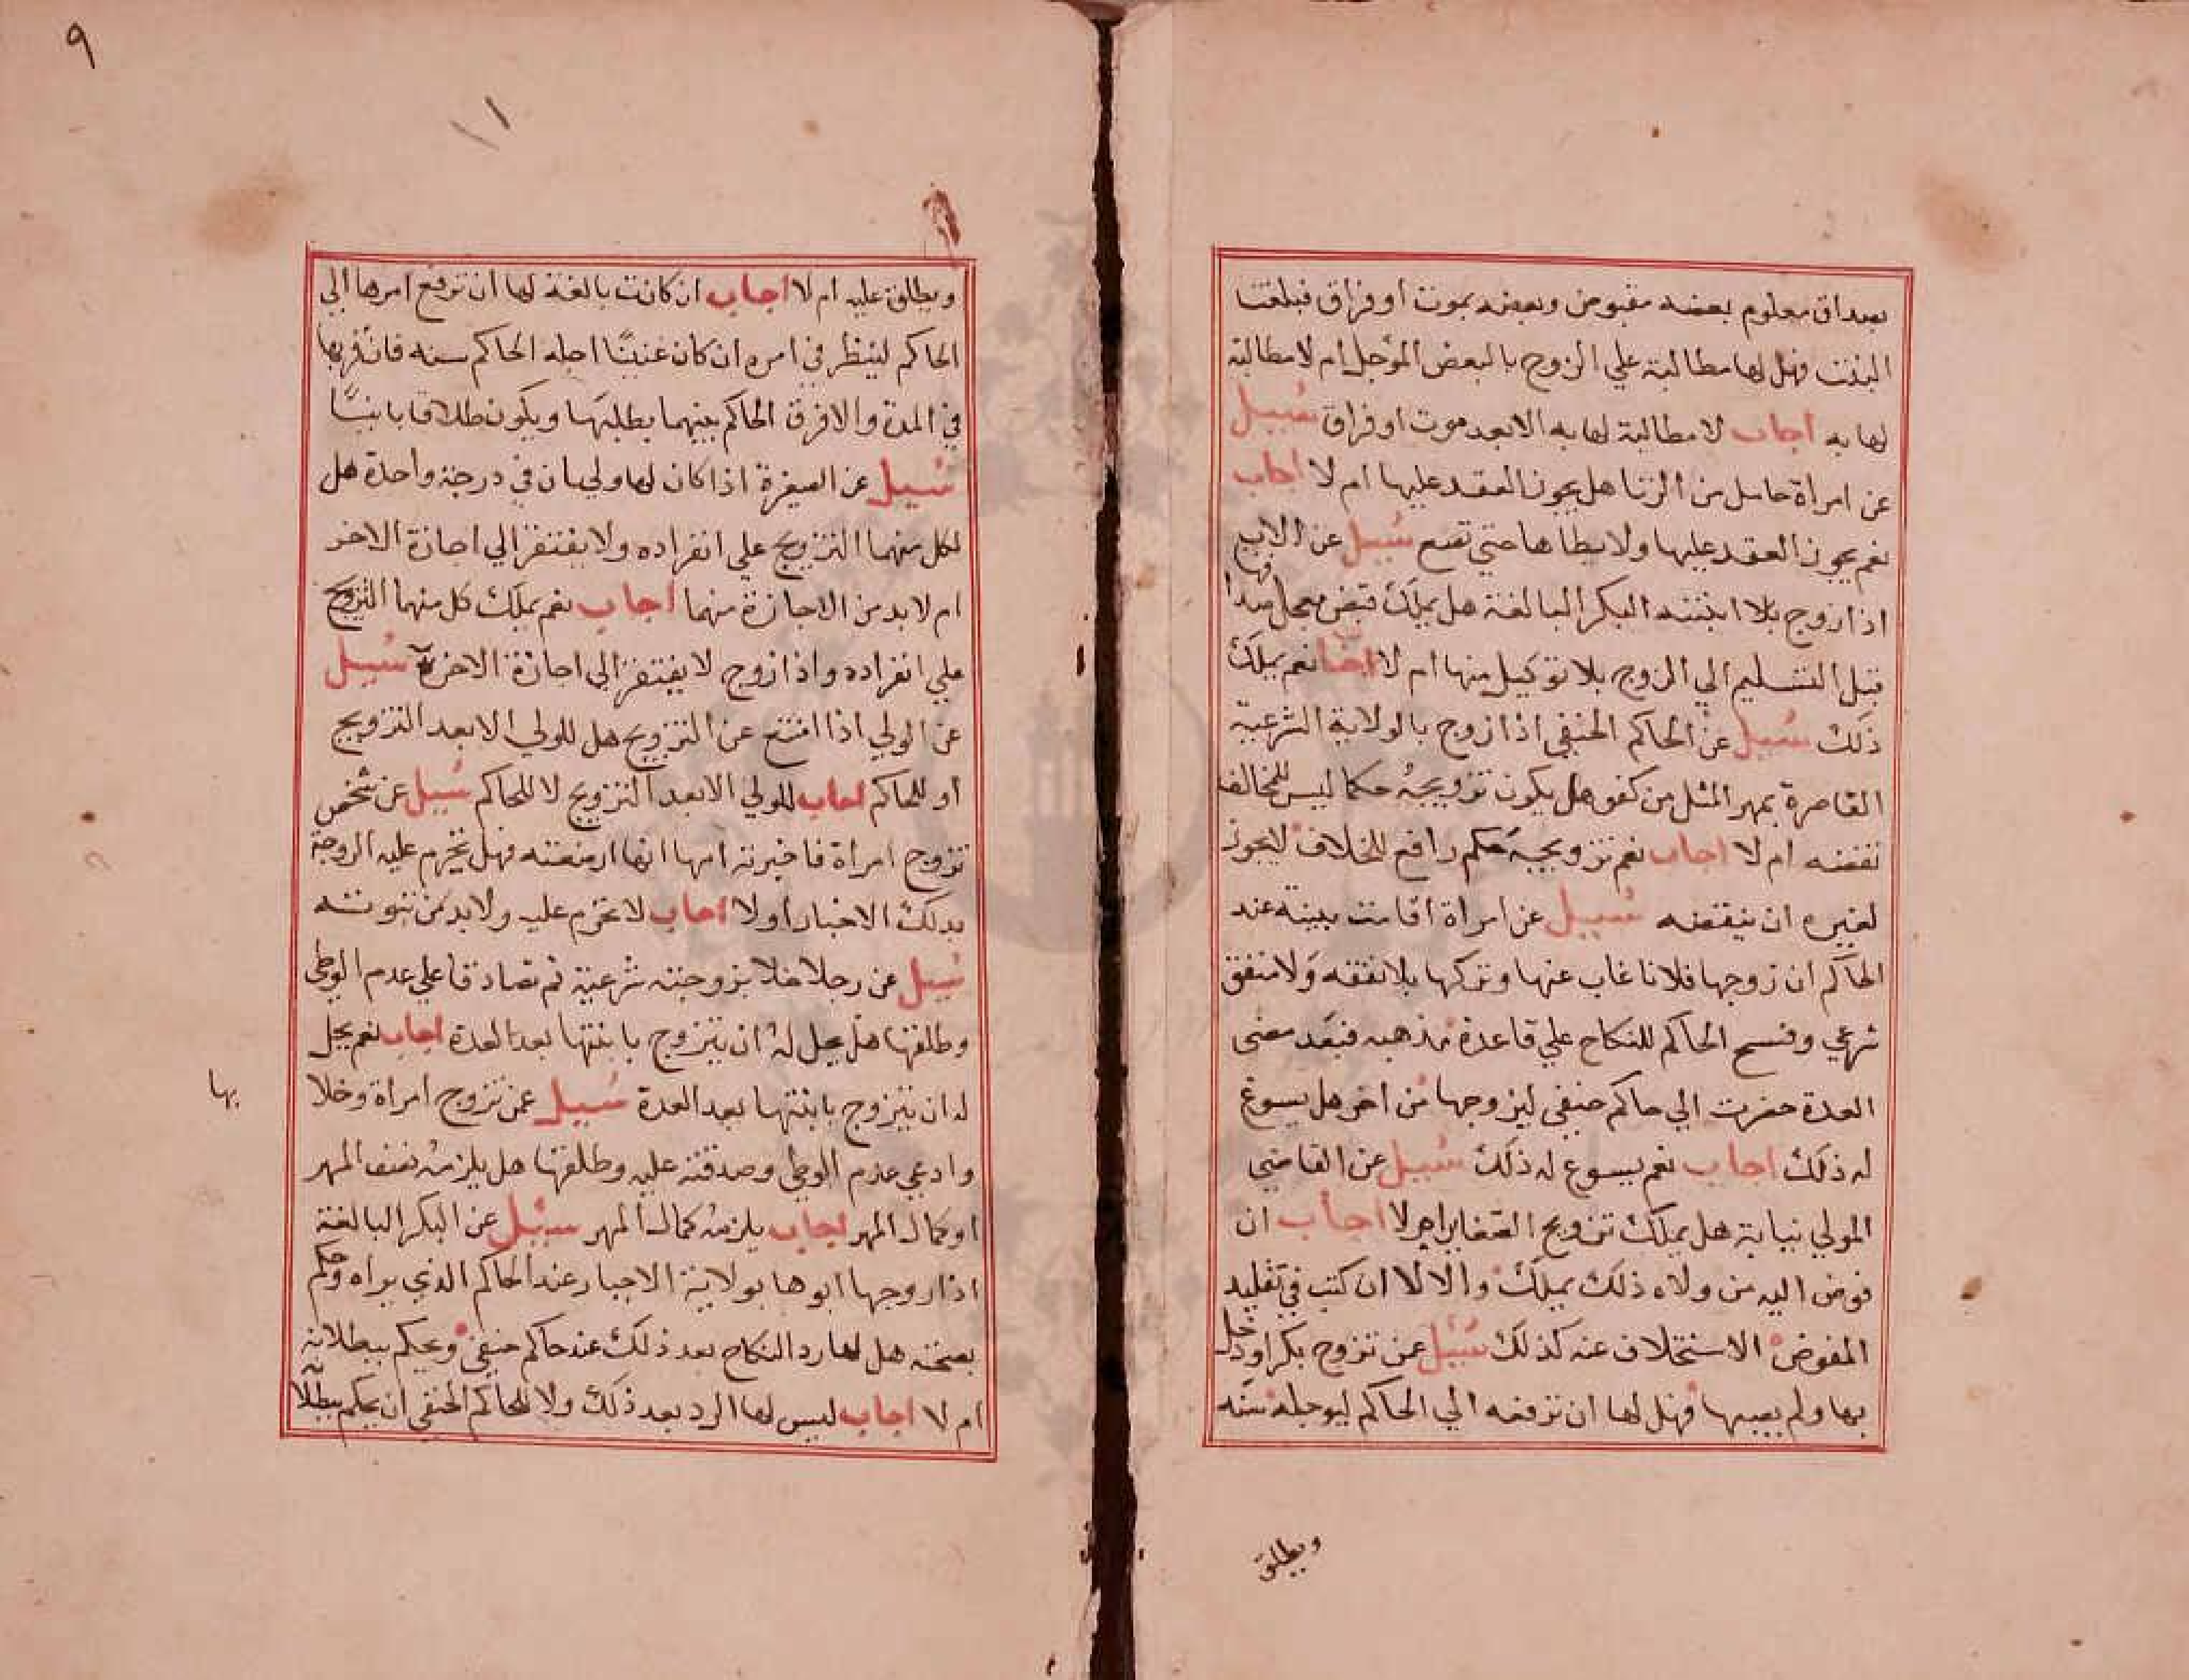 بصداق معلوم بعضه مقبوض وبعضه بموت او فراق فبلغت
البنت فهل لها مطالبة علي الزوج بالبعض المؤجل ام لا مطالبة
لها به اجاب لا مطالبة لها به الا بعد موت او فراق سُيل
عن امراة حامل من الزنا هل يجوز العقد عليها ام لا اجاب
نعم يجوز العقد عليها ولا يطاها حتي تضع سُيل عن الاب
اذا زوج بلا ابنته البكر البالغة هل يملك قبض معجل مهرها
قبل التسليم الي الزوج بلا توكيل منها ام لا اجاب نعم يملك
ذلك سُيل عن الحاكم الحنفي اذا زوج بالولاية الشرعية
القاصرة بمهر المثل من كفو هل يكون تزويجه حكما ليس للمخالف
نقضه ام لا اجاب نعم تزويجه حكم رافع للخلاف لا يجوز
لغيره ان ينقضه سُيل عن امراة اقامت بينة عند
الحاكم ان زوجها فلانا غاب عنها وتركها بلا نفقه ولا منفق
شرعي وفسح الحاكم للنكاح علي قاعدة مذهبه فبعد مضى
العدة حضرت الي حاكم حنفي ليزوجها من اخر هل يسوغ
له ذلك اجاب نعم يسوغ له ذلك سُيل عن القاضي
المولي نيابة هل يملك تزويج الصغاير ام لا اجاب ان
فوض اليه من ولاه ذلك يملك والا لا ان كتب في تقليد
المفوض الاستخلاف عنه كذلك سُيل عمن تزوج بكرا ودخل
بها ولم يصبها فهل لها ان ترفعه الي الحاكم ليوجله سنه
ويطلق
٩
١١
ويطلق عليه ام لا اجاب ان كانت بالغة لها ان ترفع امرها الي
الحاكم لينظر في امره ان كان عنينًا اجله الحاكم سنه فان قربها
في المدة والا فرق الحاكم بينهما بطلبها ويكون طلاقا باينًا
سُيل عن الصغيرة اذا كان لها وليان في درجة واحدة هل
لكل منهما التزويج علي انفراده ولا يفتقر الي اجازة الاخر
ام لا بد من الاجازة منهما اجاب نعم يملك كل منهما التزويج
علي انفراده واذا زوج لا يفتقر الي اجازة الاخر سُيل
عن الولي اذا امتنع عن التزويج هل للولي الابعد التزويج
او للحاكم اجاب للولي الابعد التزويج لا للحاكم سُيل عن شخص
تزوج امراة فاخبرته امها انها ارضعته فهل تحرم عليه الزوجة
بذلك الاخبار او لا اجاب لا تحرم عليه ولا بد من ثبوته
سُيل عن رجلا خلا بزوجته شرعية ثم تصادقا علي عدم الوطي
وطلقها هل يحل له ان يتزوج بابنتها بعد العدة اجاب نعم يحل
له ان يتزوج بابنتها بعد العدة سُيل عمن تزوج امراة وخلا
بها
وادعي عدم الوطي وصدقته عليه وطلقها هل يلزمه نصف المهر
او كمال المهر اجاب يلزمه كمال المهر سئيل عن البكر البالغة
اذا زوجها ابوها بولاية الاجبار عند الحاكم الذي يراه وحكم
بصحته هل لها رد النكاح بعد ذلك عند حاكم حنفي ويحكم ببطلانه
ام لا اجاب ليس لها الرد بعد ذلك ولا للحاكم الحنفي ان يحكم ببطلانه